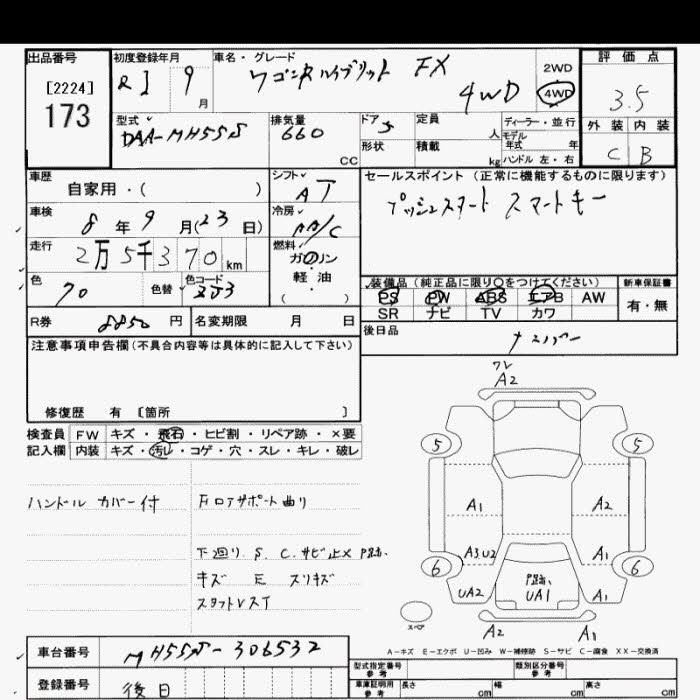 出品番号
[2224]
173
初度登録年月
R1 9月
車名・グレード
ワゴンRハイブリット FX
4WD
2WD
4WD
評価点
3.5
外装 内装
C B
型式
DAA-MH55S
排気量
660
CC
ドア 5
形状
定員
人
積載
kg
ディーラー・並行
モデル年式 年
ハンドル 左・右
車歴
自家用・( )
シフト
AT
車検
8年9月(23日)
冷房
AA/C
走行
2万5千370km
燃料
ガソリン
軽・油
( )
色
70
色替
色コード
ZJ3
セールスポイント(正常に機能するものに限ります)
プッシュスタート スマートキー
装備品(純正品に限り○をつけてください)
PS PW ABS エアB AW
SR ナビ TV カワ
新車保証書
有・無
R券 8850円
名変期限 月 日
後日品
ナンバー
注意事項申告欄(不具合内容等は具体的に記入して下さい)
修復歴 有 〔箇所 〕
検査員記入欄
FW キズ・飛石・ヒビ割・リペア跡・×要
内装 キズ・汚れ・コゲ・穴・スレ・キレ・破レ
ハンドル カバー付
Fロアサポート曲り
下廻り S. C. サビ止×
キズ E スリキズ
スタットVスイ
ワレ
A2
5
5
A1
A2
A3 U2
A1
6
6
UA2
UA1
A1
スペア
A2
A1
A-キズ E-エクボ U-凹み W-補修跡 S-サビ C-腐食 XX-交換済
車台番号
MH55S-306532
登録番号
後日
型式指定番号
参考
類別区分番号
参考
車庫証明用
参考
長さ cm
幅 cm
高さ cm